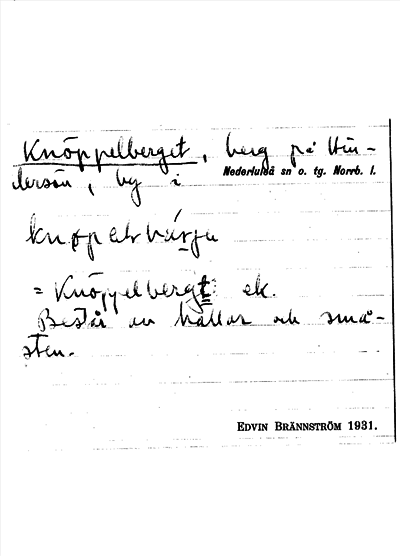 Knöppelberget, berg på Hin-
dersön, by i Nederluleå sn o. tg. Norrb. l.
= Knöppelberget ek.
Består av hällar och små-
sten.
EDVIN BRÄNNSTRÖM 1931.